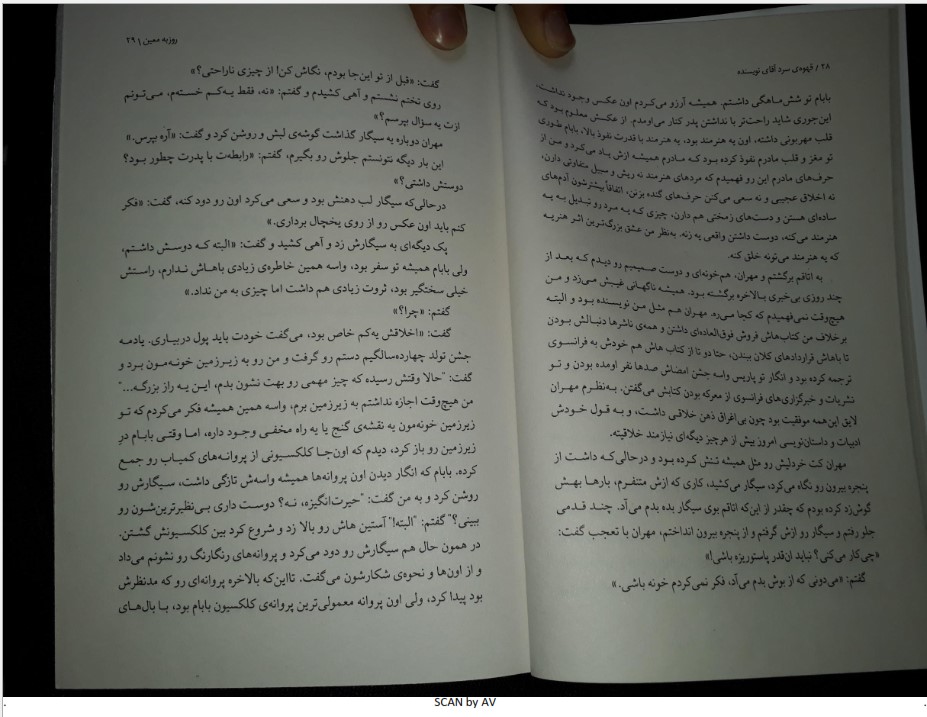 ۲۸ / قهوه‌ی سرد آقای نویسنده
بابام تو شش‌ماهگی داشتم. همیشه آرزو می‌کردم اون عکس وجود نداشت،
این‌جوری شاید راحت‌تر با نداشتن پدر کنار می‌اومدم. از عکسش معلوم بود که
قلب مهربونی داشته، اون یه هنرمند بود، یه هنرمند با قدرت نفوذ بالا، بابام طوری
تو مغز و قلب مادرم نفوذ کرده بود که مادرم همیشه ازش یاد می‌کرد و من از
حرف‌های مادرم این رو فهمیدم که مردهای هنرمند نه ریش و سبیل متفاوتی دارن،
نه اخلاق عجیبی و نه سعی می‌کنن حرف‌های گنده بزنن، اتفاقاً بیشترشون آدم‌های
ساده‌ای هستن و دست‌های زمختی هم دارن، چیزی که یه مرد رو تبدیل به یه
هنرمند می‌کنه، دوست داشتن واقعی یه زنه. به‌نظر من عشق بزرگ‌ترین اثر هنریه
که یه هنرمند می‌تونه خلق کنه.
به اتاقم برگشتم و مهران، هم‌خونه‌ای و دوست صمیمیم رو دیدم که بعد از
چند روزی بی‌خبری بالاخره برگشته بود. همیشه ناگهانی غیبش می‌زد و من
هیچ‌وقت نمی‌فهمیدم که کجا می‌ره. مهران هم مثل من نویسنده بود و البته
برخلاف من کتاب‌هاش فروش فوق‌العاده‌ای داشتن و همه‌ی ناشرها دنبالش بودن
تا باهاش قراردادهای کلان ببندن، حتا دو تا از کتاب هاش هم خودش به فرانسوی
ترجمه کرده بود و انگار تو پاریس واسه جشن امضاش صدها نفر اومده بودن و تو
نشریات و خبرگزاری‌های فرانسوی از معرکه بودن کتابش می‌گفتن. به‌نظرم مهران
لایق این‌همه موفقیت بود چون بی‌اغراق ذهن خلاقی داشت، و به قول خودش
ادبیات و داستان‌نویسی امروز بیش از هرچیز دیگه‌ای نیازمند خلاقیته.
مهران کت خردلیش رو مثل همیشه تنش کرده بود و درحالی‌که داشت از
پنجره بیرون رو نگاه می‌کرد، سیگار می‌کشید، کاری که ازش متنفرم، بارها بهش
گوش‌زد کرده بودم که چقدر از این‌که اتاقم بوی سیگار بده بدم می‌آد. چند قدمی
جلو رفتم و سیگار رو ازش گرفتم و از پنجره بیرون انداختم، مهران با تعجب گفت:
«چی‌کار می‌کنی؟ نباید ان‌قدر پاستوریزه باشی!»
گفتم: «می‌دونی که از بوش بدم می‌آد، فکر نمی‌کردم خونه باشی.»
روزبه معین \ ۲۹
گفت: «قبل از تو این‌جا بودم، نگاش کن! از چیزی ناراحتی؟»
روی تختم نشستم و آهی کشیدم و گفتم: «نه، فقط یه‌کم خسته‌م، می‌تونم
ازت یه سؤال بپرسم؟»
مهران دوباره یه سیگار گذاشت گوشه‌ی لبش و روشن کرد و گفت: «آره بپرس.»
این بار دیگه نتونستم جلوش رو بگیرم، گفتم: «رابطه‌ت با پدرت چطور بود؟
دوستش داشتی؟»
درحالی‌که سیگار لب دهنش بود و سعی می‌کرد اون رو دود کنه، گفت: «فکر
کنم باید اون عکس رو از روی یخچال برداری.»
پک دیگه‌ای به سیگارش زد و آهی کشید و گفت: «البته که دوسش داشتم،
ولی بابام همیشه تو سفر بود، واسه همین خاطره‌ی زیادی باهاش ندارم، راستش
خیلی سختگیر بود، ثروت زیادی هم داشت اما چیزی به من نداد.»
گفتم: «چرا؟»
گفت: «اخلاقش یه‌کم خاص بود، می‌گفت خودت باید پول دربیاری. یادمه
جشن تولد چهارده‌سالگیم دستم رو گرفت و من رو به زیرزمین خونه‌مون برد و
گفت: "حالا وقتش رسیده که چیز مهمی رو بهت نشون بدم، این یه راز بزرگه..."
من هیچ‌وقت اجازه نداشتم به زیرزمین برم، واسه همین همیشه فکر می‌کردم که تو
زیرزمین خونه‌مون یه نقشه‌ی گنج یا یه راه مخفی وجود داره، اما وقتی بابام درِ
زیرزمین رو باز کرد، دیدم که اون‌جا کلکسیونی از پروانه‌های کمیاب رو جمع
کرده. بابام که انگار دیدن اون پروانه‌ها همیشه واسه‌ش تازگی داشت، سیگارش رو
روشن کرد و به من گفت: "حیرت‌انگیزه، نه؟ دوست داری بی‌نظیرترین‌شون رو
ببینی؟" گفتم: "البته!" آستین هاش رو بالا زد و شروع کرد بین کلکسیونش گشتن.
در همون حال هم سیگارش رو دود می‌کرد و پروانه‌های رنگارنگ رو نشونم می‌داد
و از اون‌ها و نحوه‌ی شکارشون می‌گفت. تااین‌که بالاخره پروانه‌ای رو که مدنظرش
بود پیدا کرد، ولی اون پروانه معمولی‌ترین پروانه‌ی کلکسیون بابام بود، با بال‌های
SCAN by AV